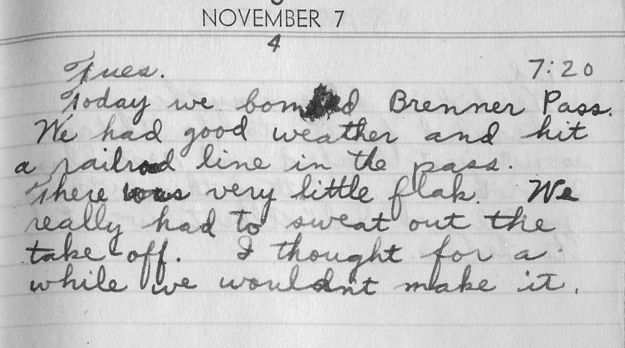 NOVEMBER 7
4
Tues. 7:20
Today we bombed Brenner Pass.
We had good weather and hit
a railroad line in the pass.
There was very little flak. We
really had to sweat out the
take off. I thought for a
while we wouldn't make it.